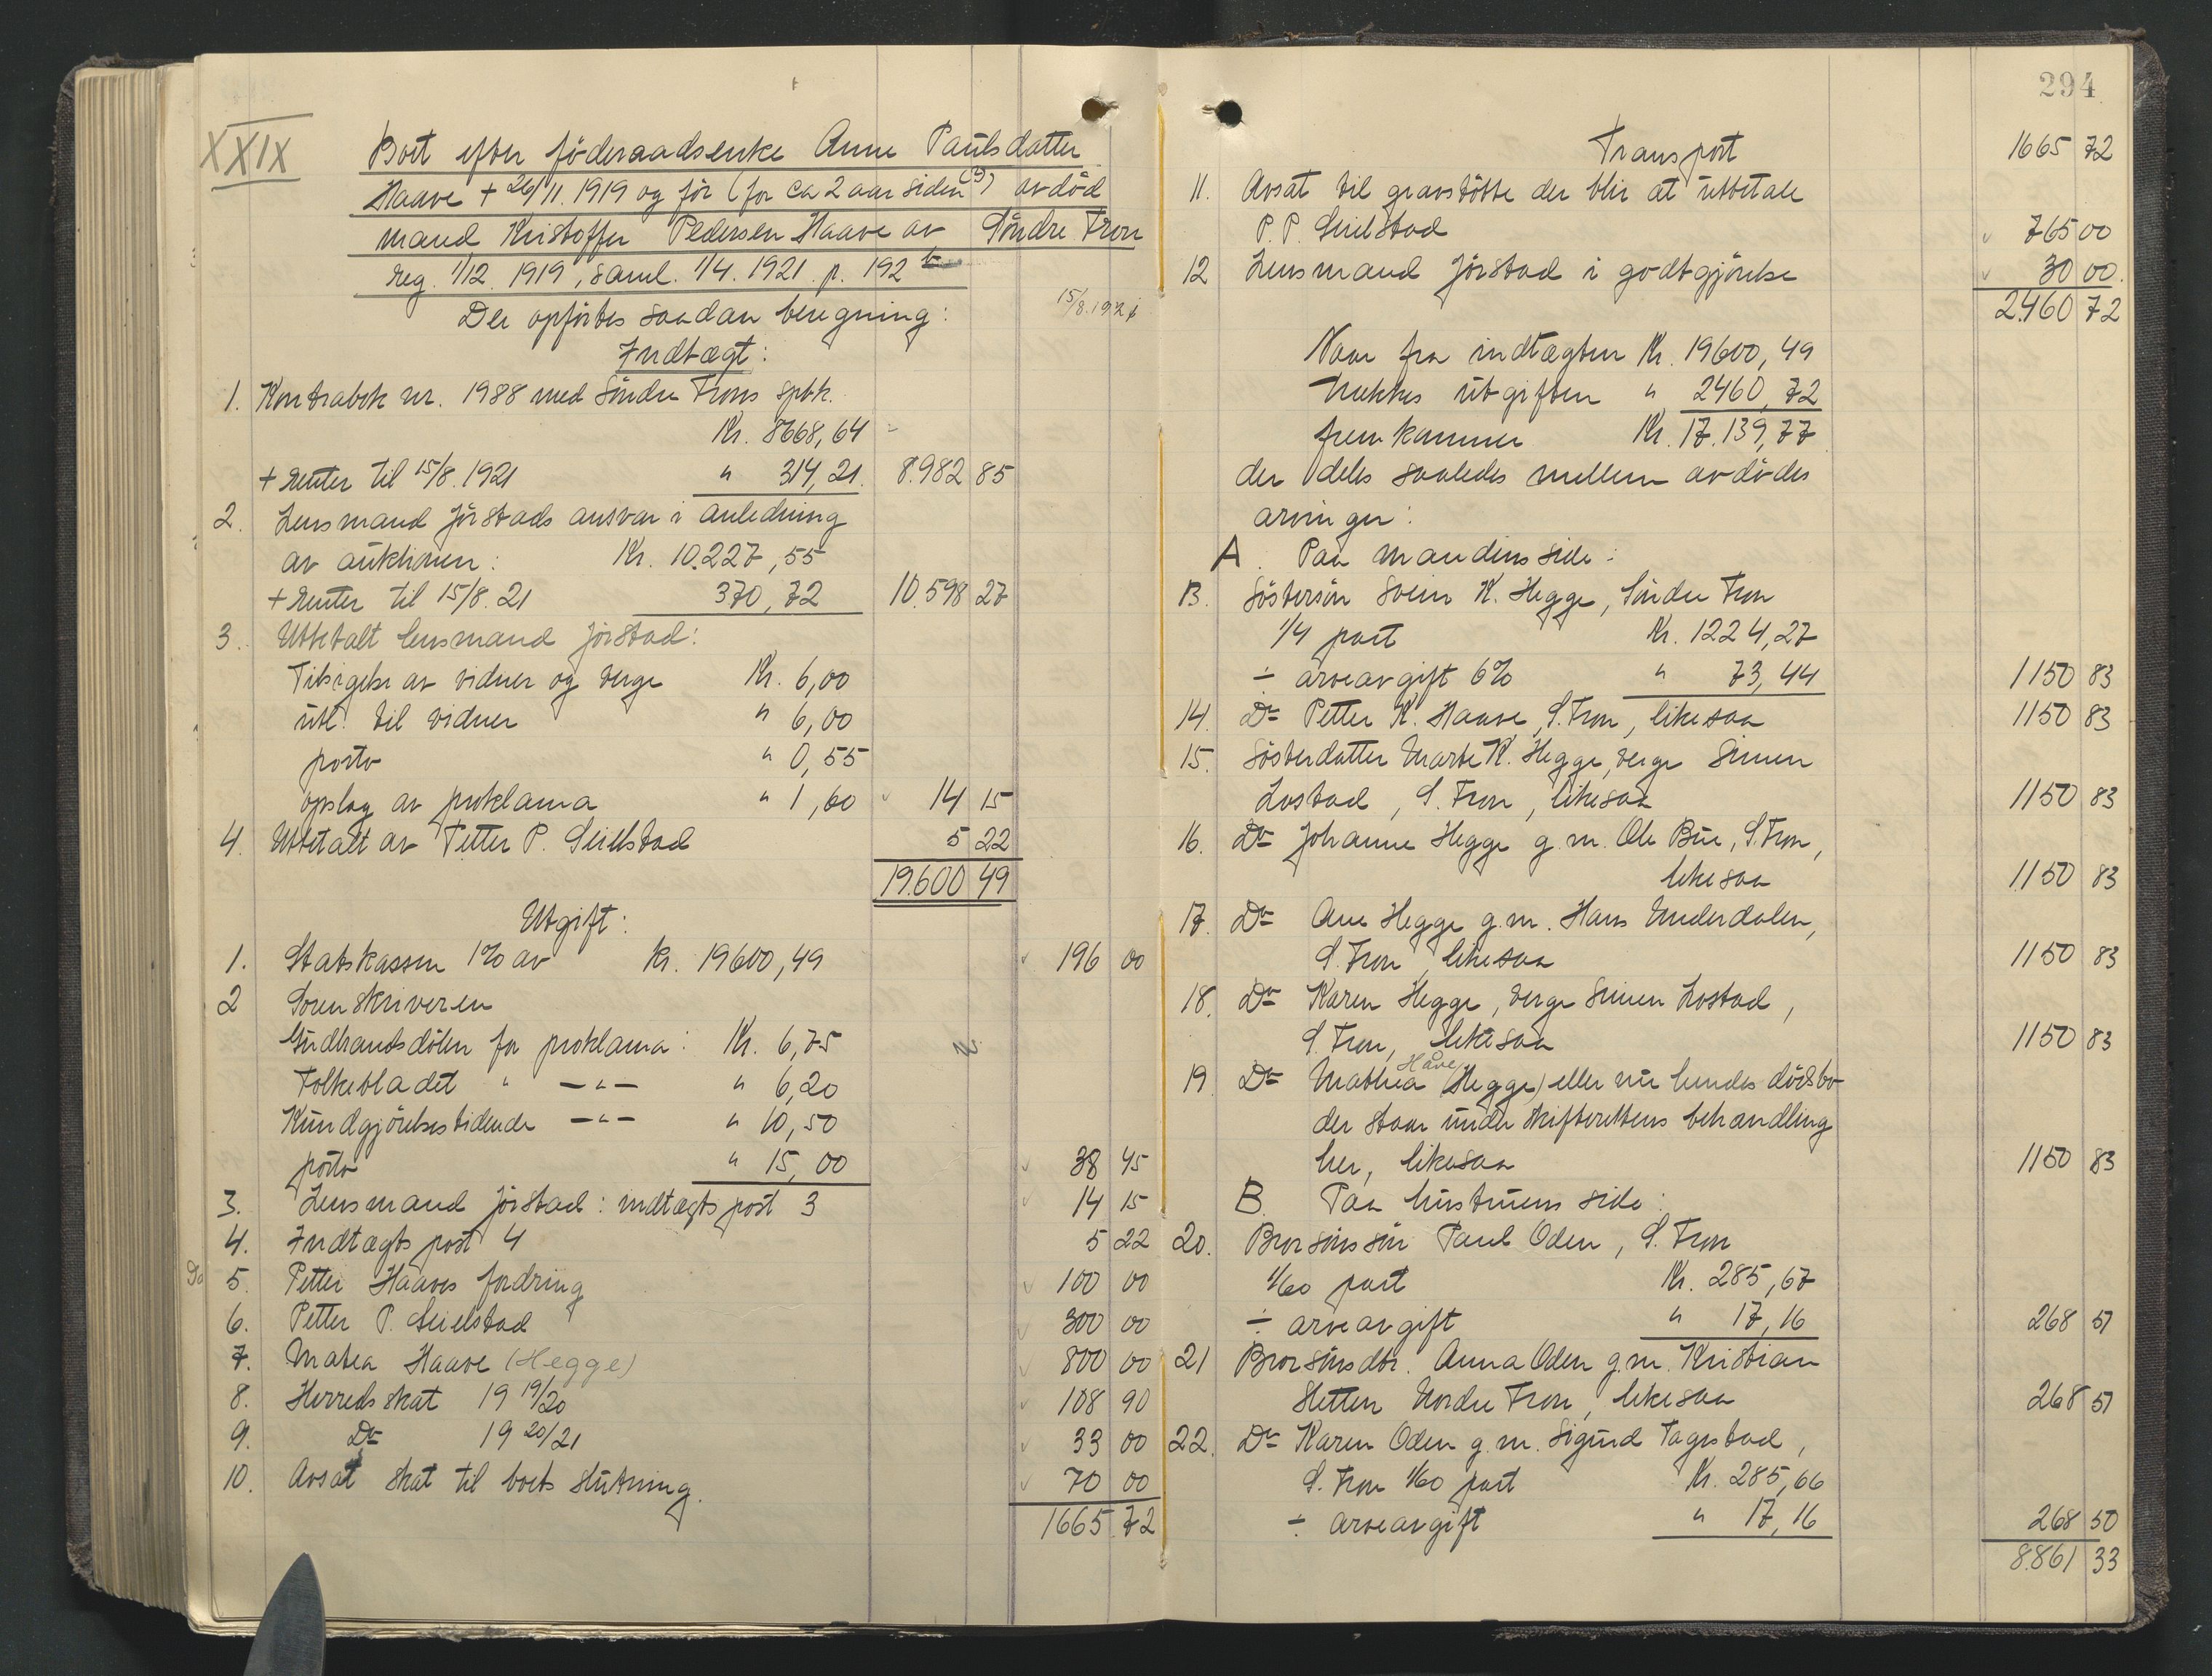 XXIX
Boet efter föderaadsenke Anne Paulsdatter
Haave + 26/11. 1919 og för (for ca 2 aar siden (?)) avdöd
mand Kristoffer Pedersen Haave av Söndre Fron
reg. 1/12. 1919, saml. 1/4. 1921. p. 192 b
Der opförtes saadan beregning: 15/8.1921
Indtægt:
1. Kontrabok nr. 1988 med Söndre Frons spbk.
Kr. 8668,64
+ renter til 15/8. 1921 " 314,21. 8.982 85
2. Lensmand Jörstads ansvar i anledning
av auktionen: Kr. 10.227,55
+ renter til 15/8. 21 370,72 10.598 27
3. Utbetalt lensmand Jörstad:
Tilsigelse av vidner og verge Kr. 6,00
utl. til vidner " 6,00
porto " 0,55
opslag av proklama " 1,60 14 15
4. Utbetalt av Petter P. Seielstad 5 22
19.600 49
Utgift:
1. Statskassen 1% av Kr. 19600,49 196 00
2 Sorenskriveren
Gudbrandsdölen for proklama: Kr. 6,75
Folkebladet " —"— " 6,20
Kundgjörelsestidende —"— " 10,50
porto " 15,00 38 45
3. Lensmand Jörstad: indtægts post 3 14 15
4. Indtægts post 4 5 22
5. Petter Haaves fordring 100 00
6. Petter P. Seielstad 300 00
7. Matea Haave (Hegge) 800 00
8. Herredsskat 19 19/20 108 90
9. Do 19 20/21 33 00
10. Avsat skat til boets slutning. 70 00
1665 72
294
Transport 1665 72
11. Avsat til gravstötte der blir at utbetale
P. P. Seielstad 765 00
12 Lensmand Jörstad i godtgjörelse 30 00.
2460 72
Naar fra indtægten Kr. 19600,49
trekkes utgiften " 2460,72
fremkommer Kr. 17.139,77
der deles saaledes mellem avdödes
arvinger:
A. Paa mandens side:
13. Söstersön Svein K. Hegge, Söndre Fron
1/14 part Kr. 1224,27
÷ arveavgift 6% " 73,44 1150 83
14. Do Petter K. Haave, S. Fron, likesaa 1150 83
15. Sösterdatter Marte K. Hegge, verge Simen
Lostad, S. Fron, likesaa 1150 83
16. Do Johanne Hegge g. m. Ole Bue, S. Fron,
likesaa 1150 83
17. Do Ane Hegge g. m. Hans Underdalen,
S. Fron, likesaa 1150 83
18. Do Karen Hegge, verge Simen Lostad,
S. Fron, likesaa 1150 83
19. Do Mathea Haave (Hegge) eller nu hendes dödsbo
der staar under skifterettens behandling
her, likesaa 1150 83
B. Paa hustruens side:
20. Brorsöns sön Paul Oden, S. Fron
1/60 part Kr. 285,67
÷ arveavgift " 17,16 268 51
21 Brorsöns dtr. Anna Oden g. m. Kristian
Sletten Nordre Fron, likesaa 268 51
22. Do Karen Oden g. m. Sigurd Tagestad,
S. Fron 1/60 part Kr. 285,66
÷ arveavgift " 17,16 268 50
8.861 33